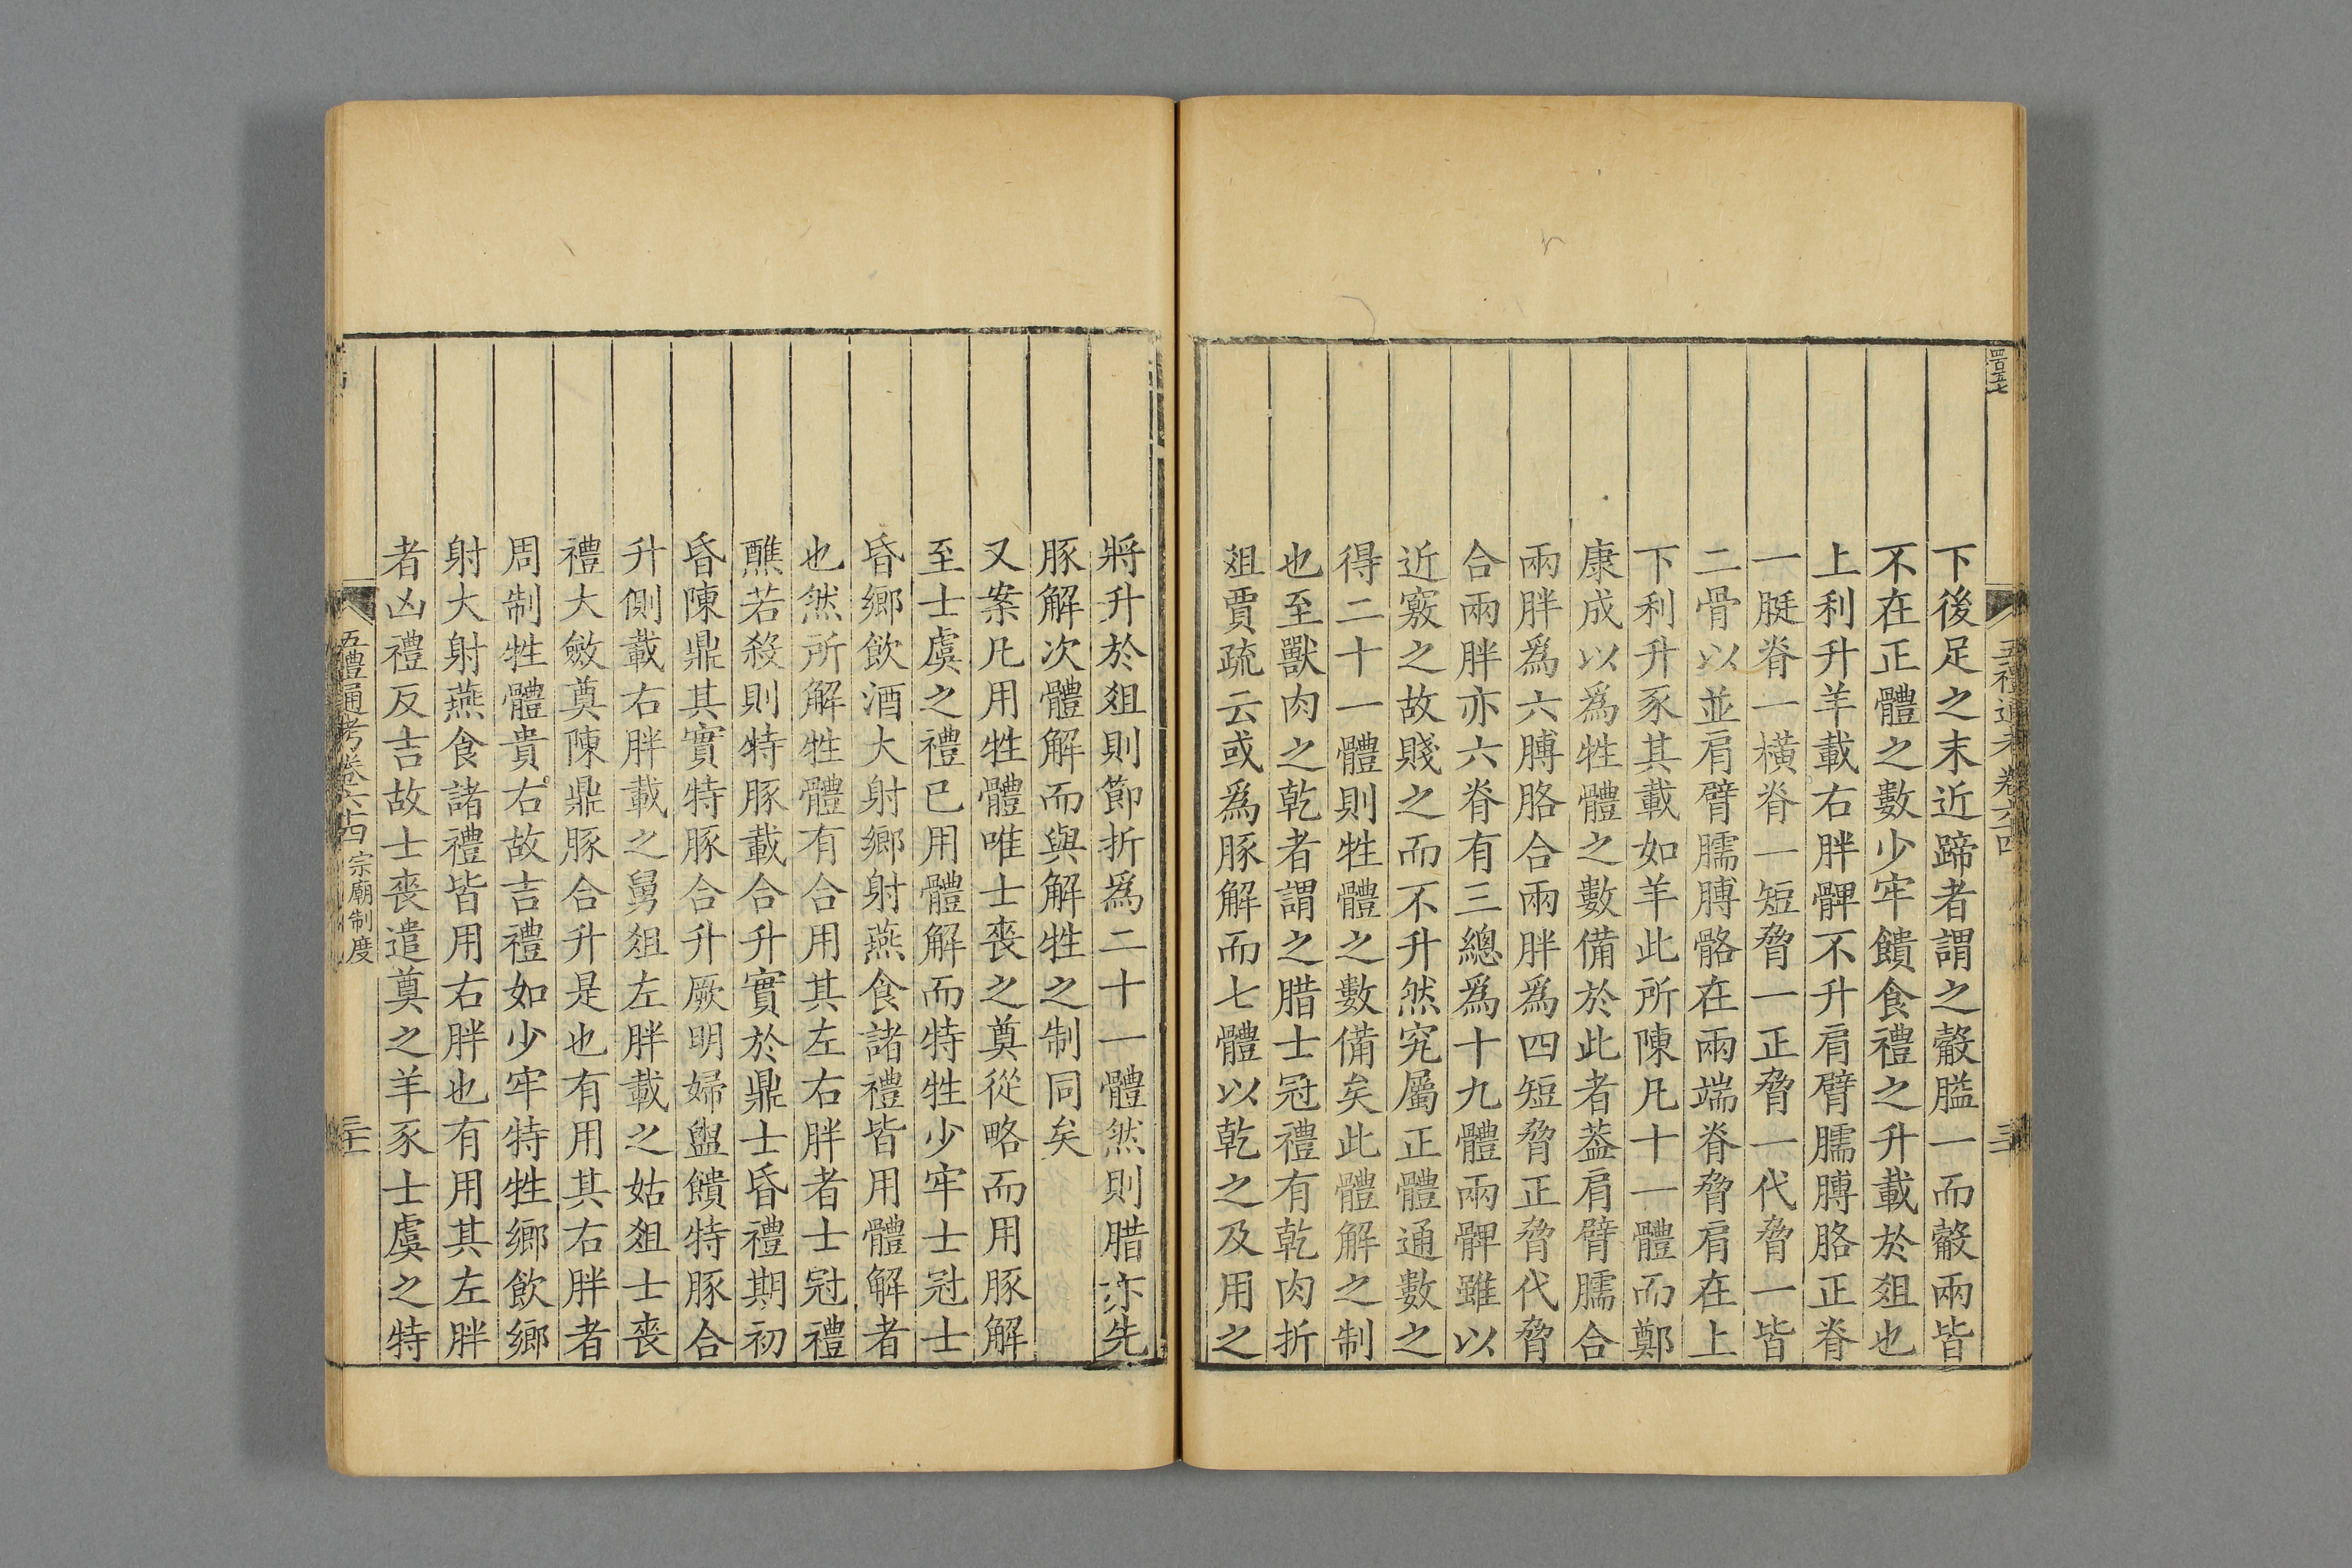 四百五七
五禮通考卷六十四
下後足之末近蹄者謂之觳膉一而觳兩皆
不在正體之數少牢饋食禮之升載於俎也
上利升羊載右胖髀不升肩臂臑膊胳正脊
一脡脊一橫脊一短脅一正脅一代脅一皆
二骨以並肩臂臑膊骼在兩端脊脅肩在上
下利升豕其載如羊此所陳凡十一體而鄭
康成以爲牲體之數備於此者葢肩臂臑合
兩胖爲六膊胳合兩胖爲四短脅正脅代脅
合兩胖亦六脊有三總爲十九體兩髀雖以
近竅之故賤之而不升然究屬正體通數之
得二十一體則牲體之數備矣此體解之制
也至獸肉之乾者謂之腊士冠禮有乾肉折
俎賈疏云或爲豚解而七體以乾之及用之
將升於俎則節折爲二十一體然則腊亦先
豚解次體解而與解牲之制同矣
又案凡用牲體唯士喪之奠從略而用豚解
至士虞之禮已用體解而特牲少牢士冠士
昏鄉飲酒大射鄉射燕食諸禮皆用體解者
也然所解牲體有合用其左右胖者士冠禮
醮若殺則特豚載合升實於鼎士昏禮期初
昏陳鼎其實特豚合升厥明婦盥饋特豚合
升側載右胖載之舅俎左胖載之姑俎士喪
禮大斂奠陳鼎豚合升是也有用其右胖者
周制牲體貴右故吉禮如少牢特牲鄉飲鄉
射大射燕食諸禮皆用右胖也有用其左胖
者凶禮反吉故士喪遣奠之羊豕士虞之特
五禮通考卷六十四 宗廟制度